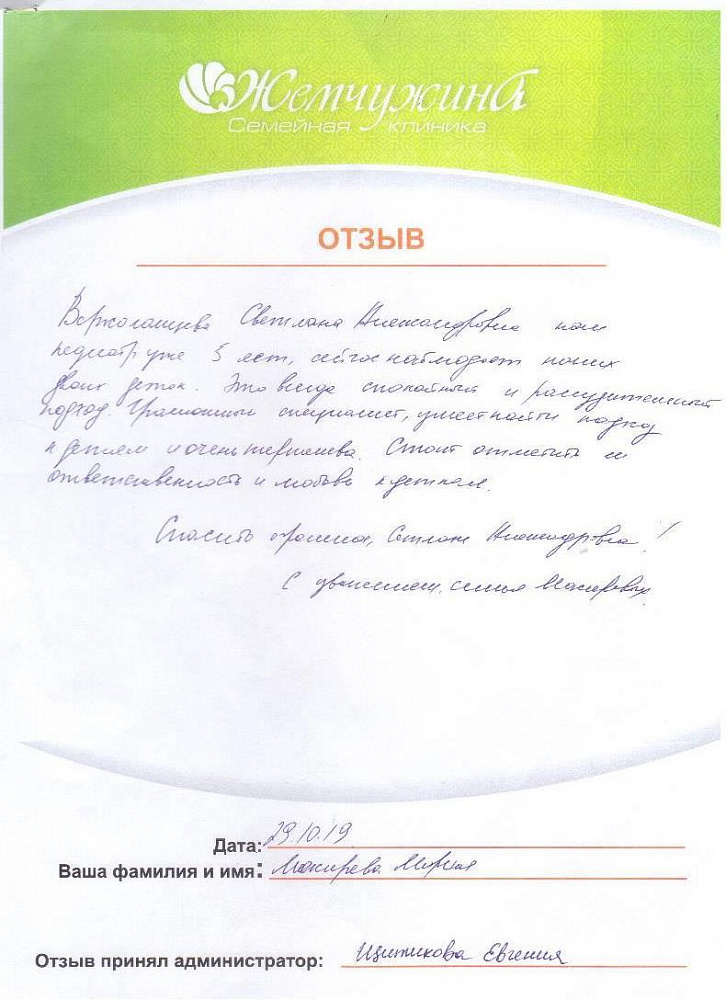 Жемчужина
Семейная клиника
ОТЗЫВ
Светлана Александровна наш
педиатр уже 5 лет, сейчас наблюдает наших
двоих деток. Это всегда спокойный и рассудительный
подход. Грамотный специалист, умеет найти подход
к детям и очень терпелива. Стоит отметить её
ответственность и любовь к деткам.
Спасибо огромное, Светлана Александровна!
С уважением, семья
Дата: 29.10.19
Ваша фамилия и имя: Мария
Отзыв принял администратор: Щитикова Евгения